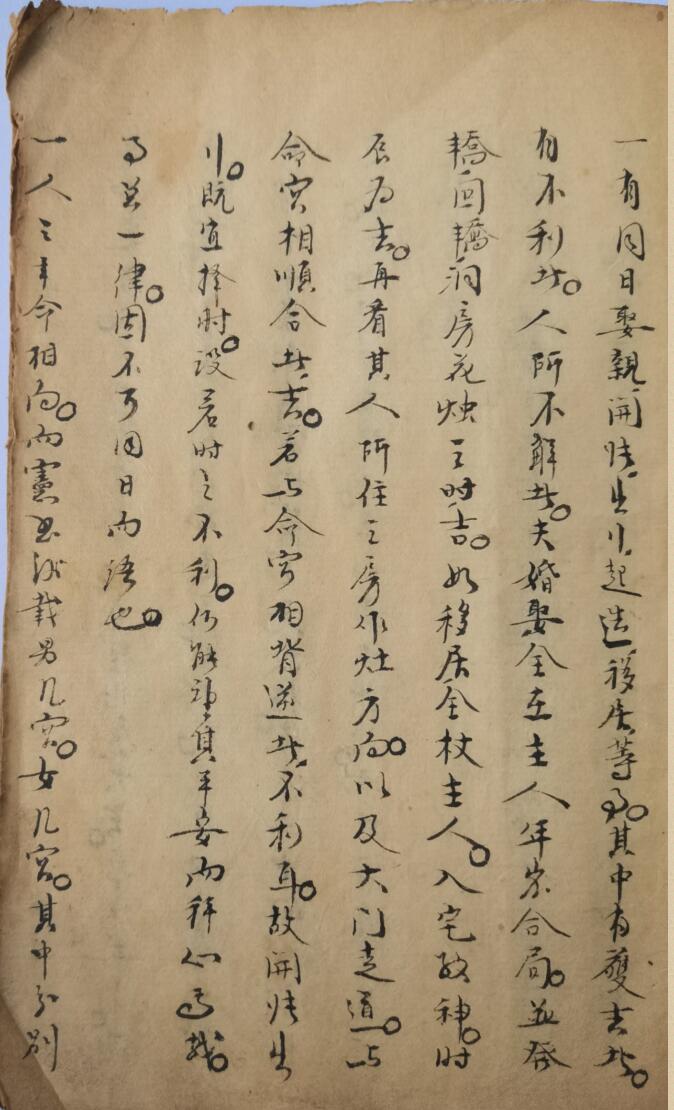 一有同日娶親開張出行起造移居等事。其中有獲吉者。
有不利者。人所不解者。夫婚娶全在主人年岁合局。並發
轎回轎洞房花烛之時吉。如移居全杖主人。入宅敬神。時
辰为吉。再看其人所住之房作灶方向。以及大门走道。与
命宮相順合者吉。若与命宮相背逆者不利耳。故開張出
行。既宜择时。设若时之不利。何能神其平安而称心焉哉。
事並一律。固不可同日而语也。
一人之年命相同。而憲书所载男几宮。女几宮。其中分别